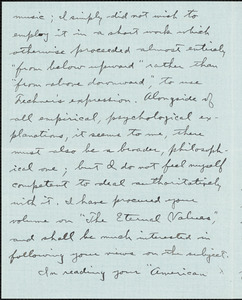 music; I simply did not wish to
employ it in a short work which
otherwise proceeded almost entirely
"from below upward" rather than
"from above downward," to use
Fechner's expression. Alongside of
all empirical, psychological ex-
planations, it seems to me, there
must also be a broader, philosoph-
ical one; but I do not feel myself
competent to deal authoritatively
with it. I have procured your
volume on "The Eternal Values",
and shall be much interested in
following your views on the subject.
In reading your "American